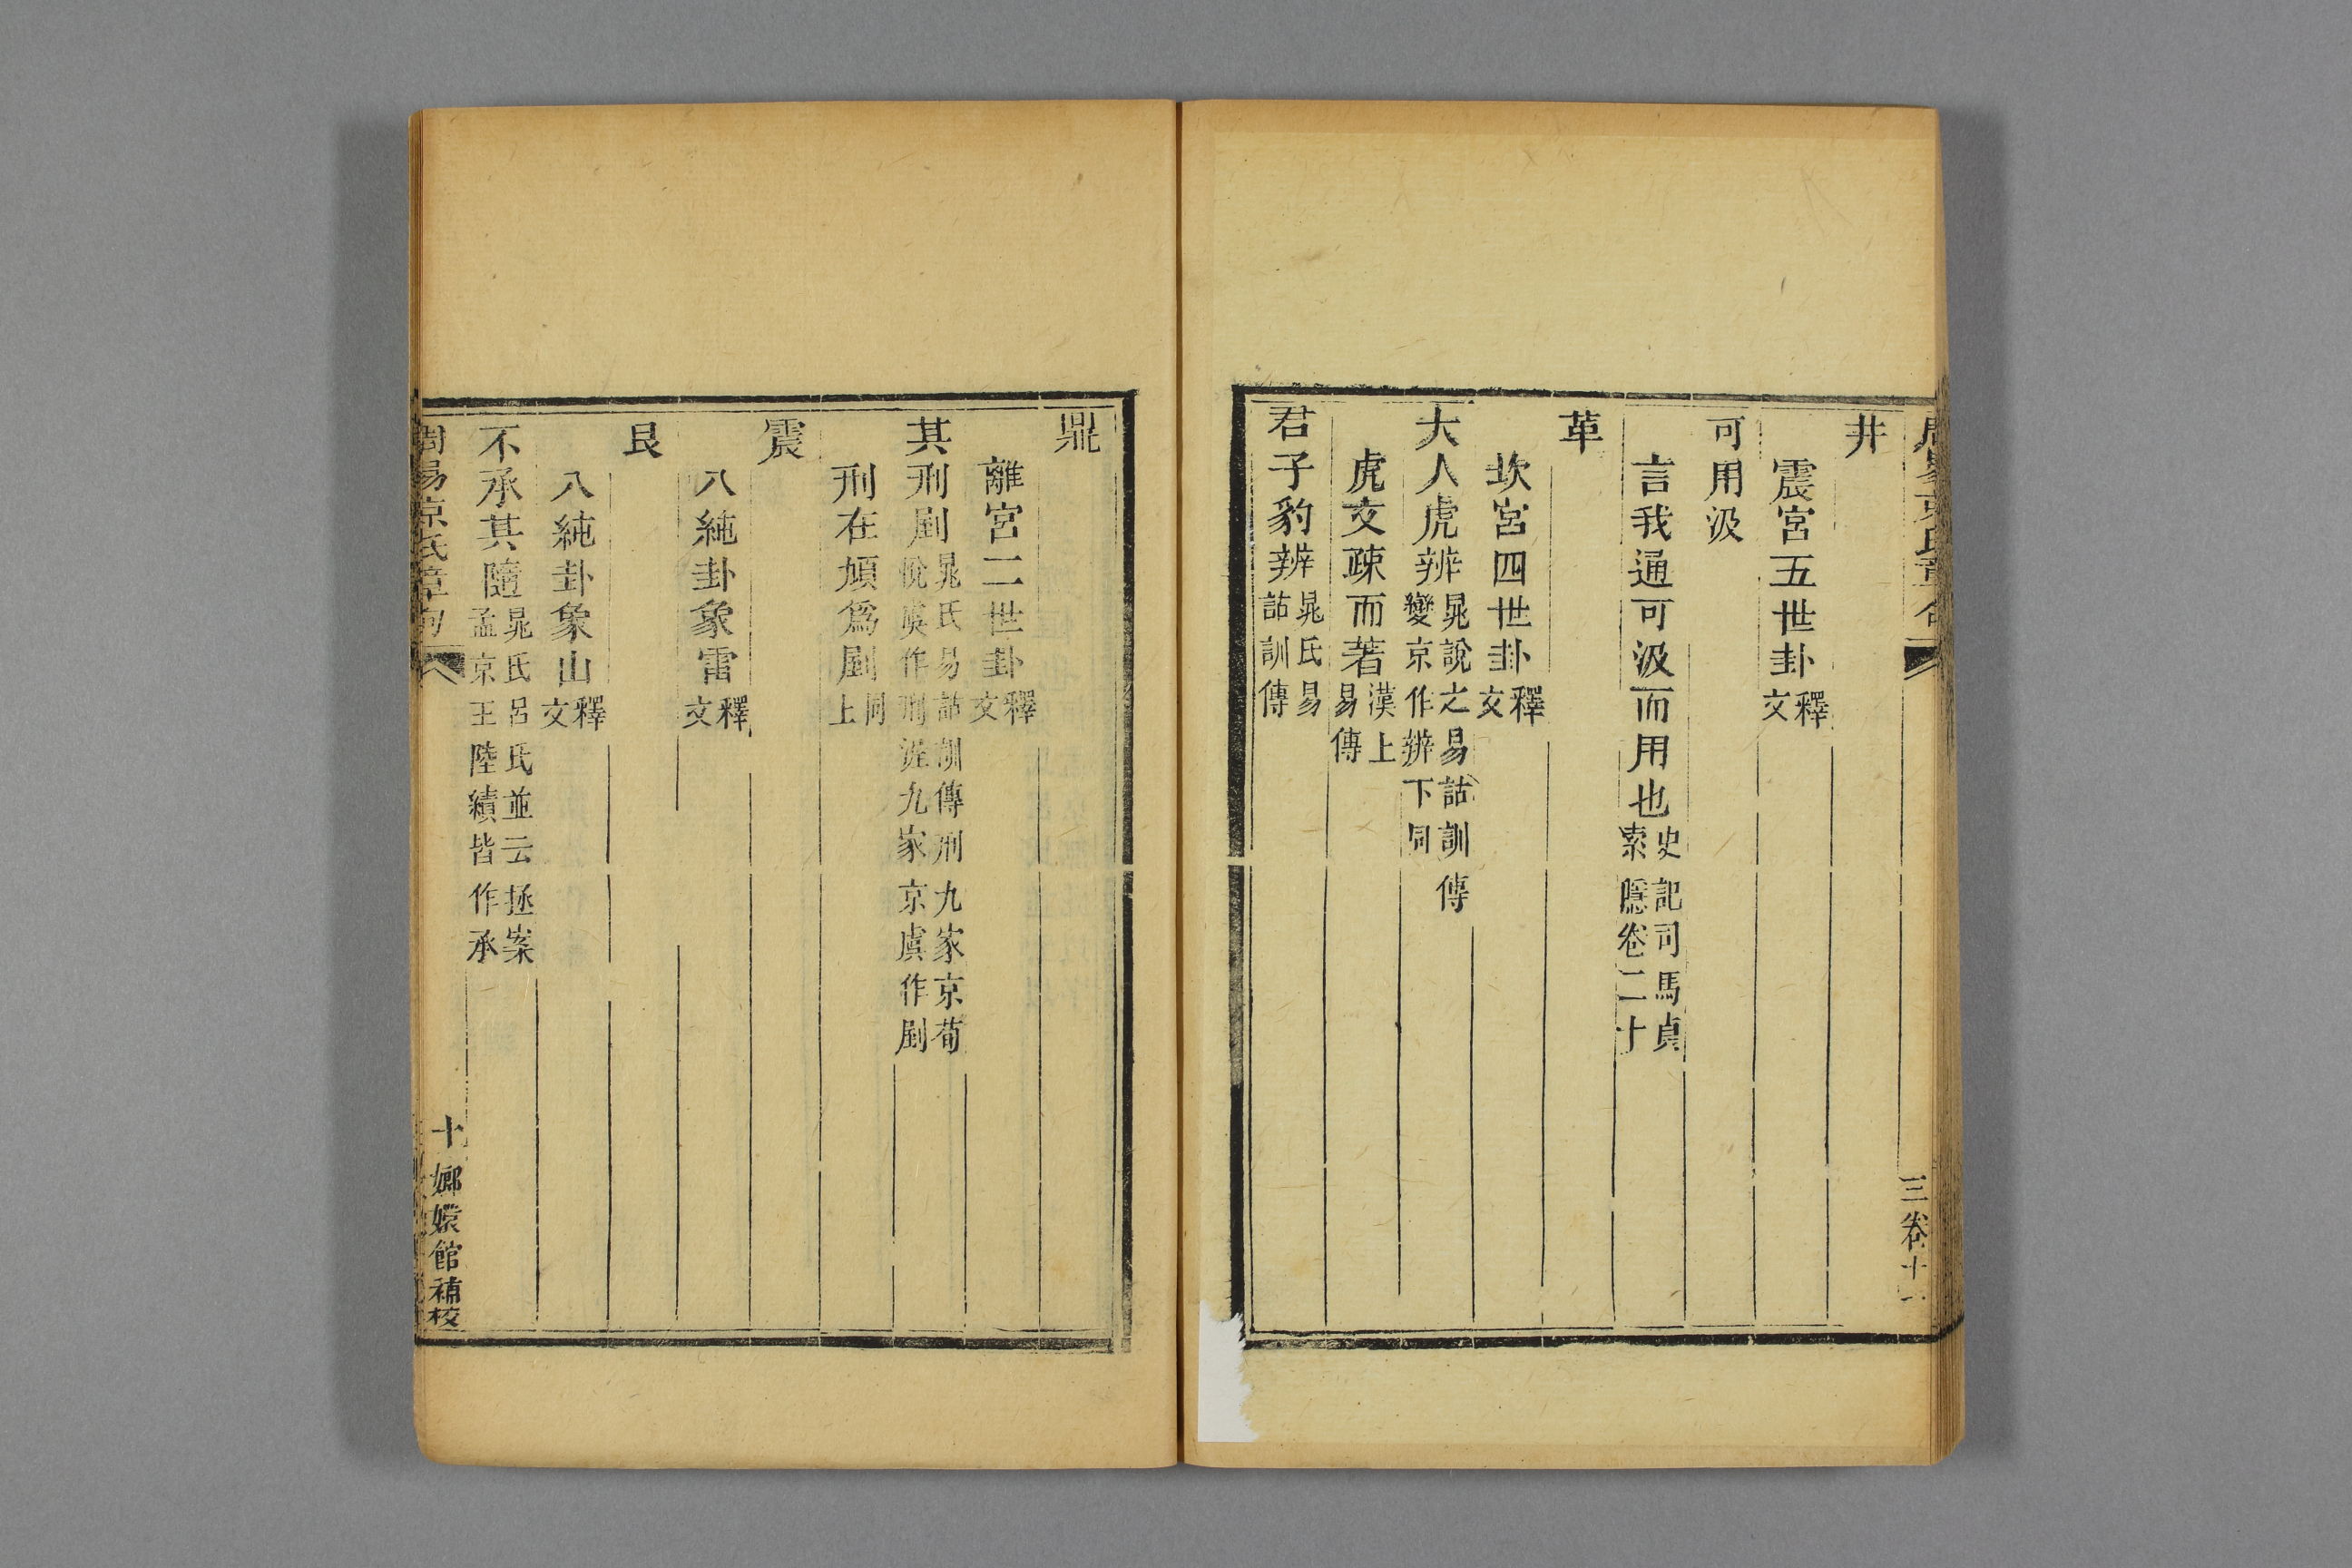 周易京氏章句 三卷十一
井
震宮五世卦釋文
可用汲
言我通可汲而用也史記司馬貞索隱卷二十
革
坎宮四世卦釋文
大人虎辨晁說之易詁訓傳變京作辨下同
虎文疎而著漢上易傳
君子豹辨晁氏易詁訓傳
鼎
離宮二世卦釋文
其刑剭晁氏易詁訓傳刑九家京荀悅虞作刑渥九家京虞作剭
刑在頄爲剭同上
震
八純卦象雷釋文
艮
八純卦象山釋文
不承其隨晁氏呂氏並云拯案孟京王陸績皆作承
周易京氏章句 十 嫏嬛館補校